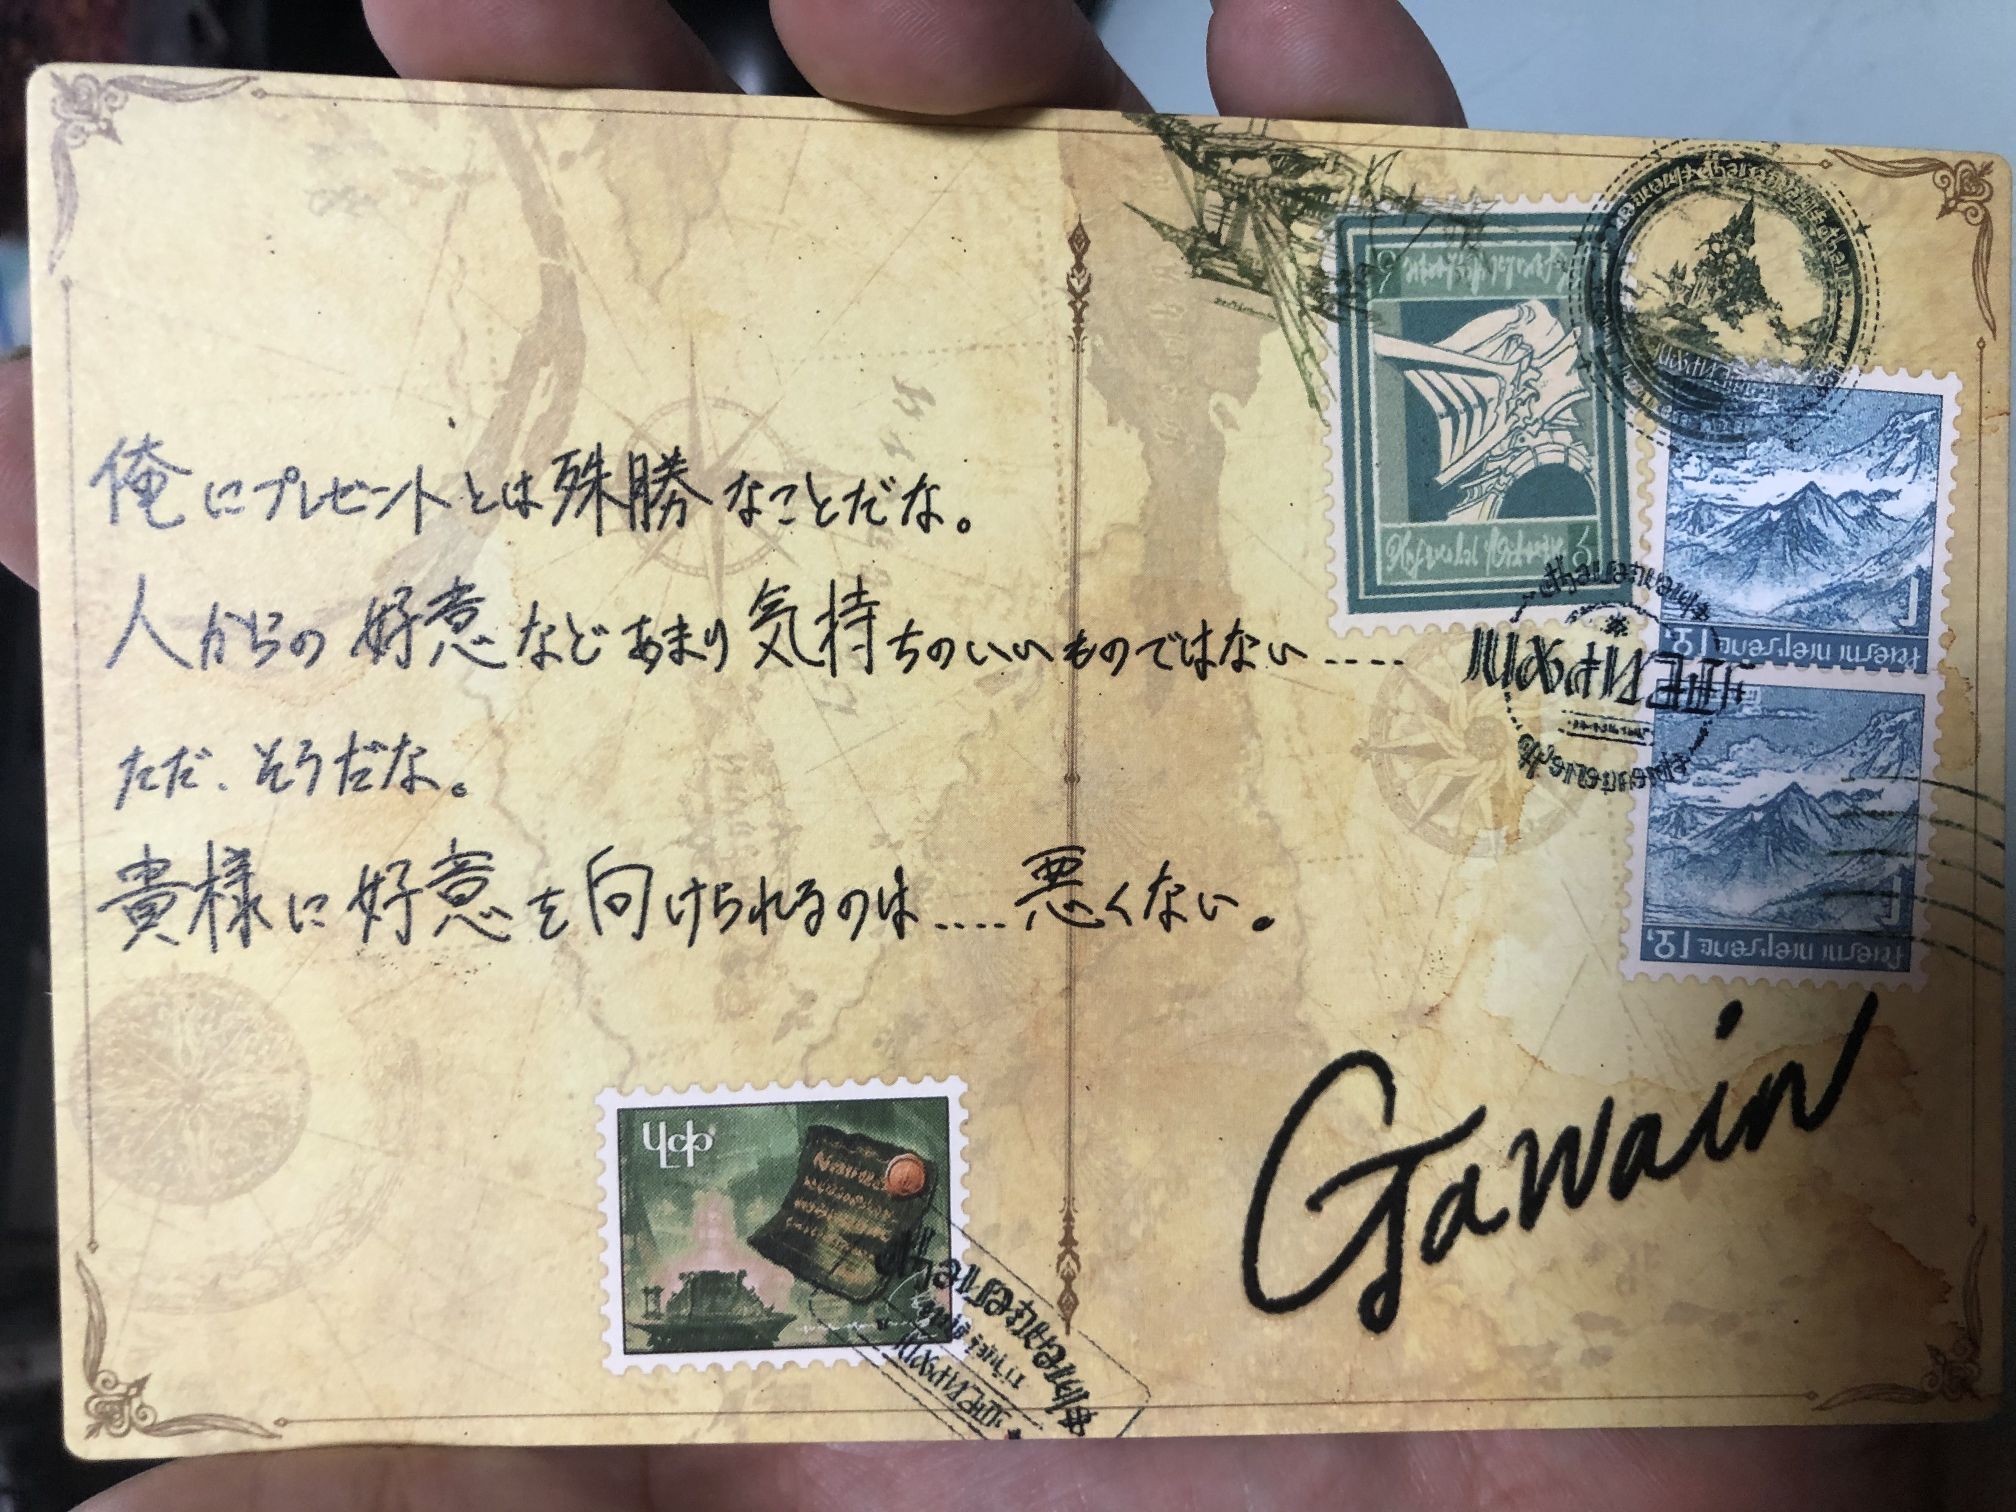 俺にプレゼントとは殊勝なことだな。
人からの好意などあまり気持ちのいいものではない....
ただ、そうだな。
貴様に好意を向けられるのは....悪くない。
Gawain